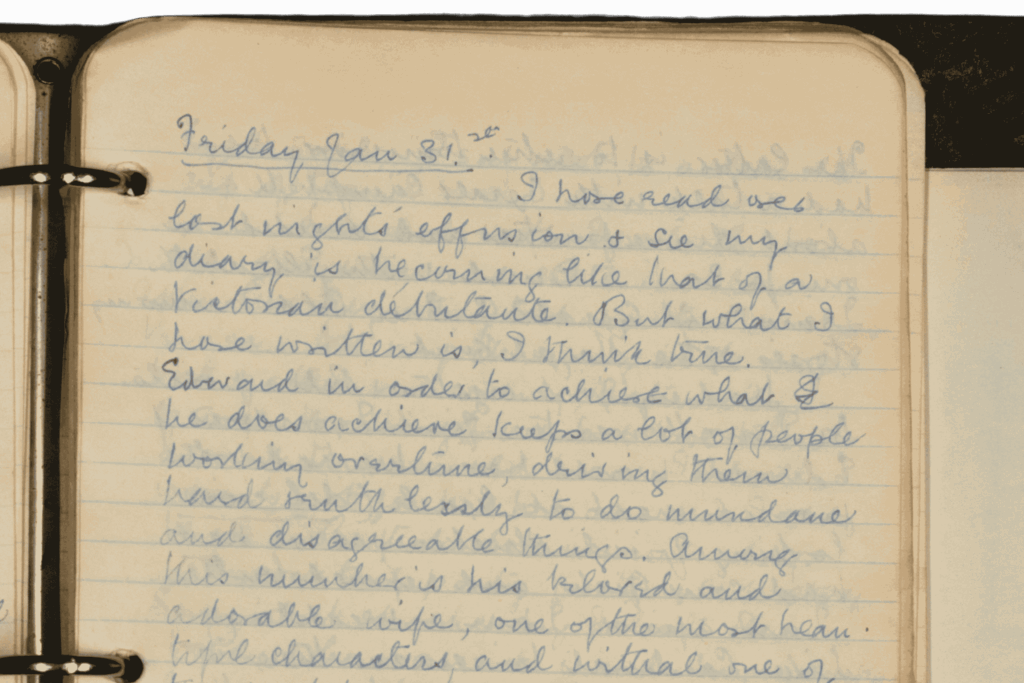 Friday Jan 31.st
I have read over
last nights' effusion & see my
diary is becoming like that of a
Victorian debutante. But what I
have written is, I think true.
Edward in order to achieve what
he does achieve keeps a lot of people
working overtime, driving them
hard ruthlessly to do mundane
and disagreeable things. Among
this number is his beloved and
adorable wife, one of the most beau-
tiful characters, and withal one of